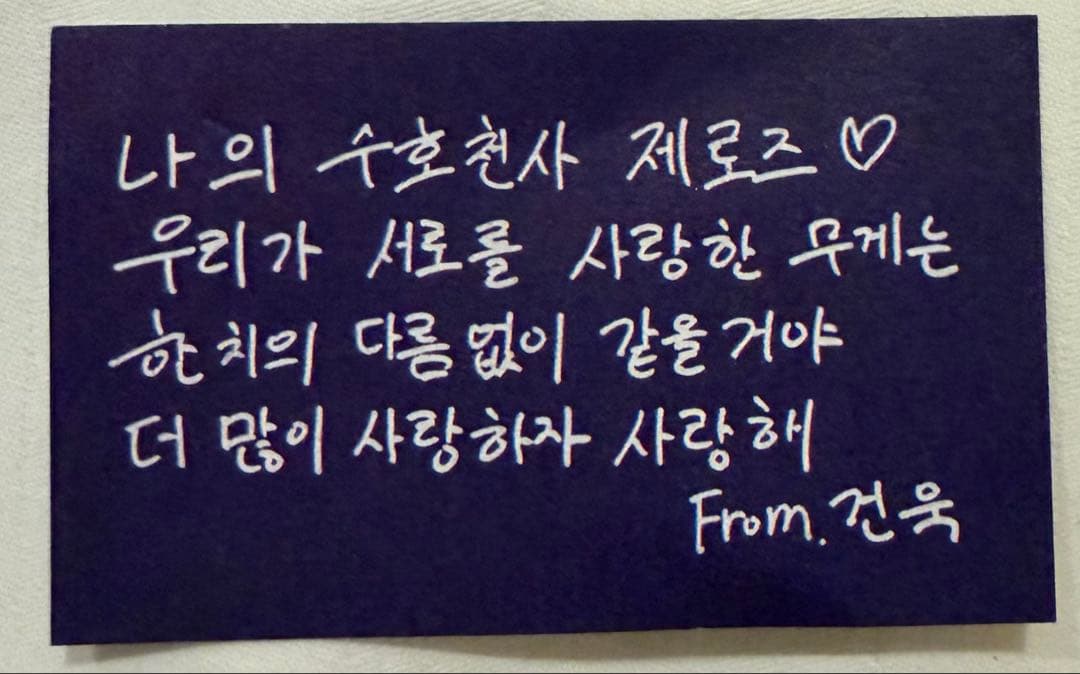 나의 수호천사 제로즈♡
우리가 서로를 사랑한 무게는
한 치의 다름없이 같을거야
더 많이 사랑하자 사랑해
From. 건욱